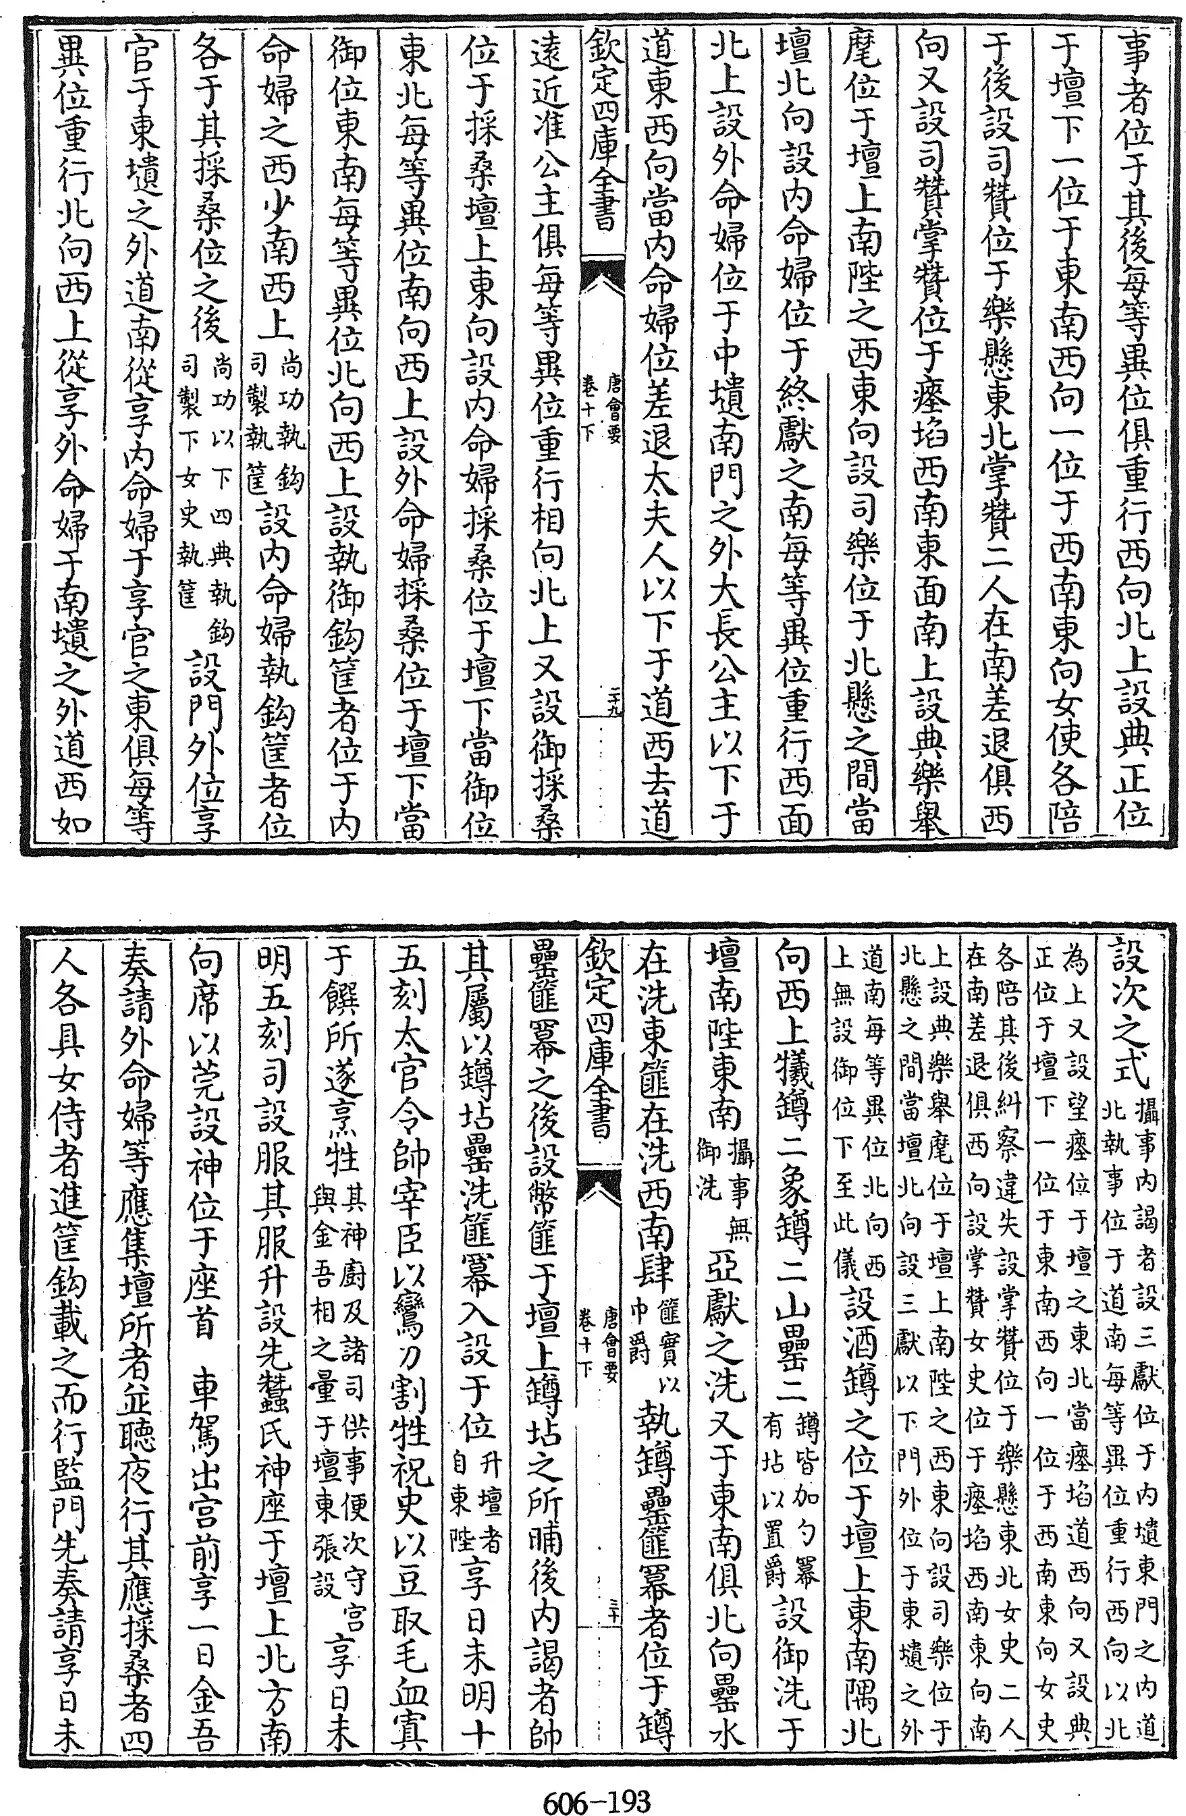 事者位于其後每等異位俱重行西向北上設典正位
于壇下一位于東南西向一位于西南東向女使各陪
于後設司贊位于樂懸東北掌贊二人在南差退俱西
向又設司贊掌贊位于瘞埳西南東面南上設典樂舉
麾位于壇上南陛之西東向設司樂位于北懸之間當
壇北向設內命婦位于終獻之南每等異位重行西面
北上設外命婦位于中壝南門之外大長公主以下于
道東西向當內命婦位差退太夫人以下于道西去道
欽定四庫全書
唐會要
卷十下
二十九
遠近准公主俱每等異位重行相向北上又設御採桑
位于採桑壇上東向設內命婦採桑位于壇下當御位
東北每等異位南向西上設外命婦採桑位于壇下當
御位東南每等異位北向西上設執御鈎筐者位于內
命婦之西少南西上
尚功執鈎
司製執筐
設內命婦執鈎筐者位
各于其採桑位之後
尚功以下四典執鈎
司製下女史執筐
設門外位享
官于東壝之外道南從享內命婦于享官之東俱每等
異位重行北向西上從享外命婦于南壝之外道西如
設次之式
攝事內謁者設三獻位于內壝東門之內道
北執事位于道南每等異位重行西向以北
為上又設望瘞位于壇之東北當瘞埳道西向又設典
正位于壇下一位于東南西向一位于西南東向女史
各陪其後糾察違失設掌贊位于樂懸東北女史二人
在南差退俱西向設掌贊女史位于瘞埳西南東向南
上設典樂舉麾位于壇上南陛之西東向設司樂位于
北懸之間當壇北向設三獻以下門外位于東壝之外
道南每等異位北向西
上無設御位下至此儀
設酒罇之位于壇上東南隅北
向西上犧罇二象罇二山罍二
罇皆加勺羃
有坫以置爵
設御洗于
壇南陛東南
攝事無
御洗
亞獻之洗又于東南俱北向罍水
在洗東篚在洗西南肆
篚實以
巾爵
執罇罍篚羃者位于罇
欽定四庫全書
唐會要
卷十下
三十
罍篚羃之後設幣篚于壇上罇坫之所晡後內謁者帥
其屬以罇坫罍洗篚羃入設于位
升壇者
自東陛
享日未明十
五刻太官令帥宰臣以鸞刀割牲祝史以豆取毛血寘
于饌所遂烹牲
其神廚及諸司供事便次守宮
與金吾相之量于壇東張設
享日未
明五刻司設服其服升設先蠶氏神座于壇上北方南
向席以莞設神位于座首　車駕出宮前享一日金吾
奏請外命婦等應集壇所者並聽夜行其應採桑者四
人各具女侍者進筐鈎載之而行監門先奏請享日未
606-193